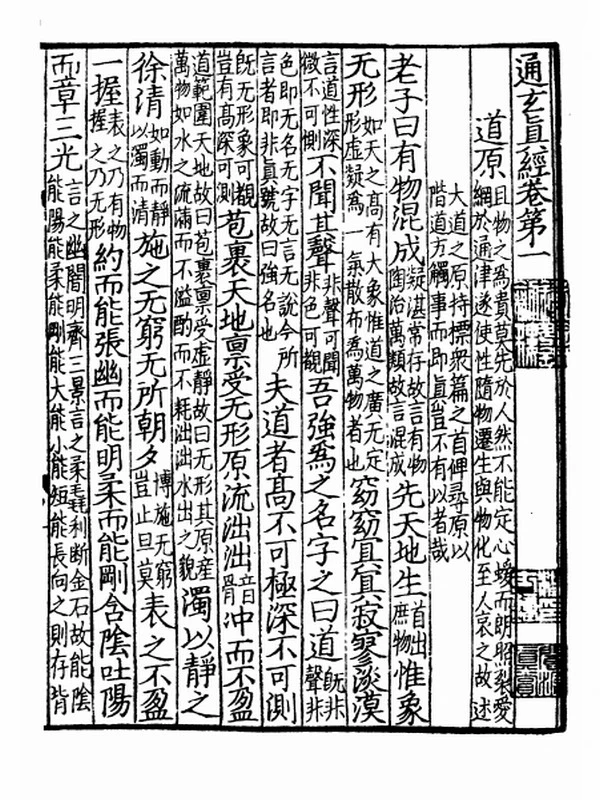 通玄眞經卷第一
道原且物之為貴莫先於人然不能定心蝯而朗照裂愛網於通津遂使性隨物遷生與物化至人哀之故述
大道之原持標衆篇之首俾尋原以階道方觸事而即眞豈不有以者哉
老子曰有物混成凝湛常存故言有物陶冶萬類故言混成先天地生首出庶物惟象
无形如天之高有大象惟道之廣无定形虛凝為一氣散布為萬物者也窈窈冥冥寂寥淡漠
言道性深微不可側不聞其聲非聲可聞非色可觀吾強為之名字之曰道既非聲非
色即无名无字无言无說今所言者即非眞號故曰強名也夫道者高不可極深不可測
既无形象可觀豈有高深可測苞裹天地稟受无形原流泏泏音骨沖而不盈
道範圍天地故曰苞裹稟受虛靜故曰无形其原産萬物如水之流滿而不溢酌而不耗泏泏水出之貌濁以靜之
徐清如動而靜以濁而清施之无窮无所朝夕博施无窮豈止旦莫表之不盈
一握表之乃有物握之乃无形約而能張幽而能明柔而能剛含陰吐陽
而章三光言之幽闇明齊三景言之柔毳利斷金石故能陰能陽能柔能剛能大能小能短能長向之則存背